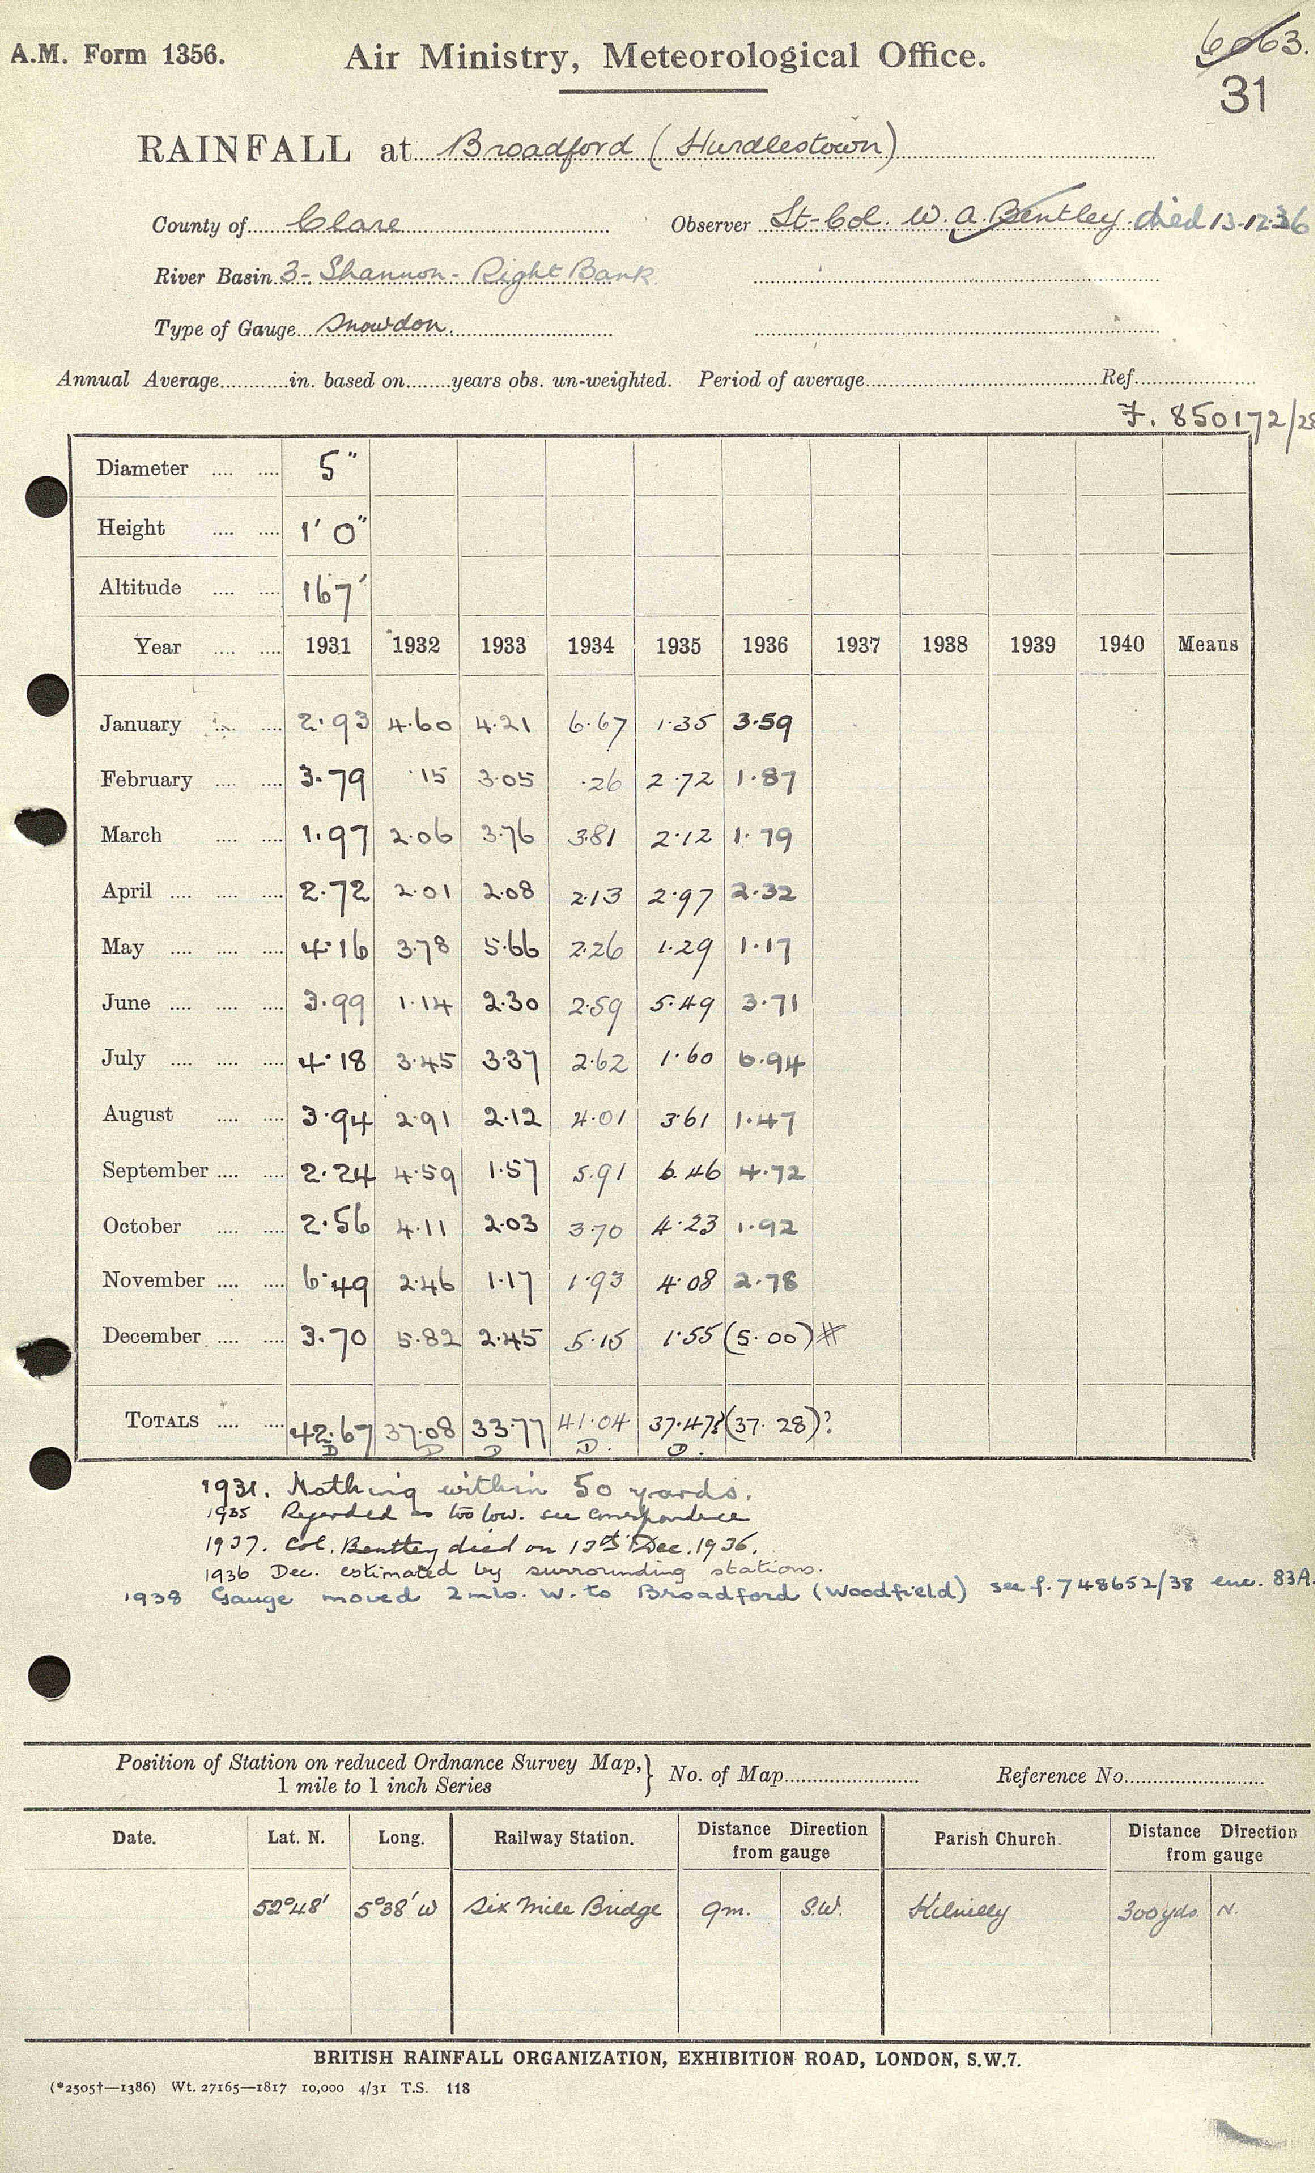 A.M. Form 1356.
Air Ministry, Meteorological Office.
6063.
31
RAINFALL at Broadford (Hurdlestown)
County of Clare Observer Lt-Col. W. A. Bentley. died 13.12.36
River Basin 3 - Shannon - Right Bank
Type of Gauge Snowdon.
Annual Average............in. based on........years obs. un-weighted. Period of average..............................Ref....................
F. 850172/28
Diameter .... .... 5"
Height .... .... 1' 0"
Altitude .... .... 167'
Year .... .... 1931 1932 1933 1934 1935 1936 1937 1938 1939 1940 Means
January .... 2.93 4.60 4.21 6.67 1.35 3.59
February .... .... 3.79 .15 3.05 .26 2.72 1.87
March .... .... 1.97 2.06 3.76 3.81 2.12 1.79
April .... .... .... 2.72 2.01 2.08 2.13 2.97 2.32
May .... .... .... 4.16 3.78 5.66 2.26 1.29 1.17
June .... .... .... 3.99 1.14 2.30 2.59 5.49 3.71
July .... .... .... 4.18 3.45 3.37 2.62 1.60 6.94
August .... .... 3.94 2.91 2.12 4.01 3.61 1.47
September .... .... 2.24 4.59 1.57 5.91 6.46 4.72
October .... .... 2.56 4.11 2.03 3.70 4.23 1.92
November .... .... 6.49 2.46 1.17 1.93 4.08 2.78
December .... .... 3.70 5.82 2.45 5.15 1.55 (5.00) #
TOTALS .... .... 42.67 37.08 33.77 41.04 37.47? (37.28)?
D D D D. D.
1931. Nothing within 50 yards.
1935 Regarded as too low. see correspondence
1937. Col. Bentley died on 13th Dec. 1936.
1936 Dec. estimated by surrounding stations.
1938 Gauge moved 2 mls. W. to Broadford (Woodfield) see f. 748652/38 enc. 83A.
Position of Station on reduced Ordnance Survey Map,} No. of Map.......................... Reference No...........................
1 mile to 1 inch Series
Date. Lat. N. Long. Railway Station. Distance Direction from gauge Parish Church. Distance Direction from gauge
52°48' 5°38' W Six Mile Bridge 9m. S.W. 300 yds N.
BRITISH RAINFALL ORGANIZATION, EXHIBITION ROAD, LONDON, S.W.7.
(*2505†—1386) Wt. 27165—1817 10,000 4/31 T.S. 118